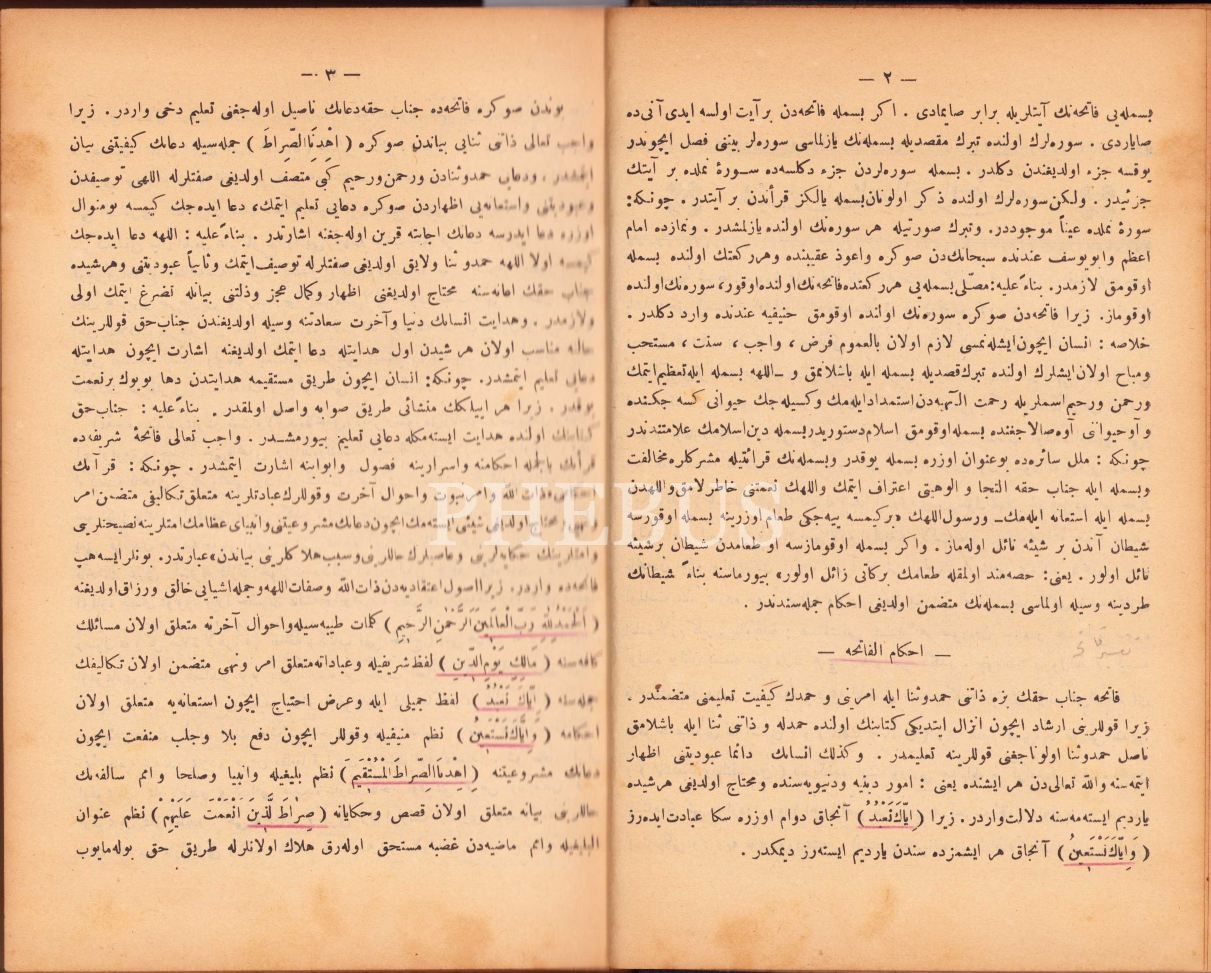 — ٢ —
بسمله‌يى فاتحه‌نك آيتلريله برابر صايمادى . اكر بسمله فاتحه‌دن برآيت اولسه ايدى آنى‌ده
صاياردى . سوره‌لرك اولنده تبرك مقصديله بسمله‌نك يازلماسى سوره‌لر بيننى فصل ايچوندر
يوقسه جزء اولديغندن دكلدر . بسمله سوره‌لردن جزء دكلسه‌ده سـورۀ نملده بر آيتك
جزئيدر . ولكن سوره‌لرك اولنده ذكر اولونان بسمله يالكز قرأندن بر آيتدر . چونكه:
سورۀ نملده عيناً موجوددر. وتبرك صورتيله هر سوره‌نك اولنده يازلمشدر . ونمازده امام
اعظم وابويوسف عندنده سبحانك‌دن صوكره واعوذ عقيبنده وهرركعتك اولنده بسمله
اوقومق لازمدر. بناءً عليه: مصلّى بسمله‌يى هرركعتده فاتحه‌نك اولنده اوقور، سوره‌نك اولنده
اوقوماز. زيرا فاتحه‌دن صوكره سوره‌نك اولنده اوقومق حنيفيه عندنده وارد دكلدر .
خلاصه : انسان ايچون ايشله‌نمسى لازم اولان بالعموم فرض ، واجب ، سنت ، مستحب
ومباح اولان ايشلرك اولنده تبرك قصديله بسمله ايله باشلانمق و ـ اللهه بسمله ايله تعظيم ايتمك
ورحمن ورحيم اسملريله رحمت الٓهيه‌دن استمداد ايله‌مك وكسيله‌جك حيوانى كسه جكنده
و آوحيوانى آوه صالاجغنده بسمله اوقومق اسلام دستوريدر بسمله دين اسلامك علامتندندر
چونكه : ملل سائره‌ده بوعنوان اوزره بسمله يوقدر وبسمله‌نك قرائتيله مشركلره مخالفت
وبسمله ايله جناب حقه التجا و الوهيتى اعتراف ايتمك واللهك نعمتنى خاطرلامق واللهدن
بسمله ايله استعانه ايله‌مك ـ ورسول اللهك «بركيمسه ييه‌جكى طعام اوزرينه بسمله اوقورسه
شيطان آندن بر شيئه نائل اوله‌ماز . واكر بسمله اوقومازسه او طعامدن شيطان برشيئه
نائل اولور . يعنى: حصه‌مند اولمقله طعامك بركاتى زائل اولور» بيورماسنه بناءً شيطانك
طردينه وسيله اولماسى بسمله‌نك متضمن اولديغى احكام جمله‌سندندر .
— احكام الفاتحه —
فاتحه جناب حقك بزه ذاتنى حمدوثنا ايله امرنى و حمدك كيفيت تعليمنى متضمندر .
زيرا قوللرينى ارشاد ايچون انزال ايتديكى كتابنك اولنده حمدله و ذاتنى ثنا ايله باشلامق
ناصل حمدوثنا اولوناجغنى قوللرينه تعليمدر . وكذلك انسانك دائما عبوديتنى اظهار
ايتمه‌سنه والله تعالى‌دن هر ايشنده يعنى : امور دينيه ودنيويه‌سنده ومحتاج اولديغى هرشيده
يارديم ايسته‌مه‌سنه دلالت واردر . زيرا ( اِيَّاكَ نَعْبُدُ ) آنجاق دوام اوزره سكا عبادت ايده‌رز
( وَاِيَّاكَ نَسْتَعِينُ ) آنجاق هر ايشمزده سندن يارديم ايسته‌رز ديمكدر .
— ٣ —
بوندن صوكره فاتحه‌ده جناب حقه دعانك ناصيل اوله‌جغنى تعليم دخى واردر . زيرا
واجب تعالى ذاتنى ثنايى بياندن صوكره ( اِهْدِنَا الصِّرَاطَ ) جمله‌سيله دعانك كيفيتنى بيان
ايتمشدر . ودعايى حمدوثنادن ورحمن ورحيم كبى متصف اولديغى صفتلرله اللهى توصيفدن
وعبوديتنى واستعانه‌يى اظهاردن صوكره دعايى تعليم ايتمك، دعا ايده‌جك كيمسه بومنوال
اوزره دعا ايدرسه دعانك اجابته قرين اوله‌جغنه اشارتدر . بناءً عليه : اللهه دعا ايده‌جك
كيمسه اولا اللهه حمدوثنا ولايق اولديغى صفتلرله توصيف ايتمك وثانياً عبوديتنى وهرشيده
جناب حقك اعانه‌سنه محتاج اولديغنى اظهار وكمال عجز وذلتنى بيانله تضرغ ايتمك اولى
ولازمدر . وهدايت انسانك دنيا وآخرت سعادتنه وسيله اولديغندن جناب حق قوللرينك
حالنه مناسب اولان هرشيدن اول هدايتله دعا ايتمك اولديغنه اشارت ايچون هدايتله
دعايى تعليم ايتمشدر. چونكه: انسان ايچون طريق مستقيمه هدايتدن دها بويوك برنعمت
يوقدر . زيرا هر اييلكك منشائى طريق صوابه واصل اولمقدر . بناءً عليه : جناب حق
كتابنك اولنده هدايت ايسته‌مكله دعايى تعليم بيورمشـدر . واجب تعالى فاتحۀ شريفه‌ده
قرأنك بالجمله احكامنه واسرارينه فصول وابوابنه اشارت ايتمشدر . چونكه : قرآنك
ذات الله وامر نبوت واحوال آخرت وقوللرك عبادتلرينه متعلق تكاليفى متضمن امر
ونهى محتاج اولديغى شيئى ايسته‌مك ايچون دعانك مشروعيتنى وانبياى عظامك امتلرينه نصيحتلرينى
وامتلرينك حكايه‌لرينى وعاصيلرك حاللرينى وسبب هلاكلرينى بياندن» عبارتدر. بونلر ايسه هپ
فاتحه‌ده واردر. زيرا اصول اعتقاديه‌دن ذات الله وصفات اللهه وجمله اشيايى خالق ورزاق اولديغنه
( اَلْحَمْدُ لِلّٰهِ رَبِّ الْعَالَمِينَ اَلرَّحْمٰنِ الرَّحِيمِ ) كلمات طيبه‌سيله واحوال آخرته متعلق اولان مسائلك
كافه‌سنه ( مَالِكِ يَوْمِ الدِّينِ ) لفظ شريفيله وعباداته متعلق امر ونهى متضمن اولان تكاليفك
جمله‌سنه ( اِيَّاكَ نَعْبُدُ ) لفظ جميلى ايله وعرض احتياج ايچون استعانه‌يه متعلق اولان
احكامه ( وَاِيَّاكَ نَسْتَعِينُ ) نظم منيفيله وقوللر ايچون دفع بلا وجلب منفعت ايچون
دعانك مشروعيتنه ( اِهْدِنَا الصِّرَاطَ الْمُسْتَقِيمَ ) نظم بليغيله وانبيا وصلحا وامم سالفه‌نك
حاللرينى بيانه متعلق اولان قصص وحكاياته ( صِرَاطَ الَّذِينَ اَنْعَمْتَ عَلَيْهِمْ ) نظم عنوان
البليغيله وامم ماضيه‌دن غضبه مستحق اوله‌رق هلاك اولانلرله طريق حق بوله‌مايوب
PHEBUS